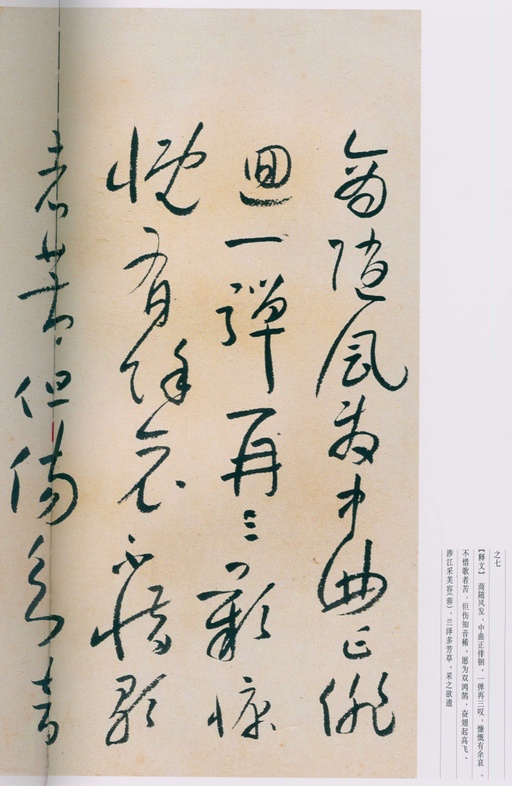 之七
【释文】 商随风发，中曲正徘徊。一弹再三叹，慷慨有余哀。
不惜歌者苦，但伤知音稀。愿为双鸿鹄，奋翅起高飞。
涉江采芙容（蓉），兰泽多芳草。采之欲遗
商隨風發中曲正俳
迴一彈再三歎慷
慨有餘哀不惜歌
者苦但傷知音